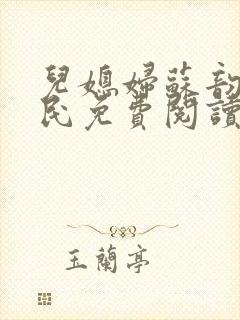 兒媳婦蘇韵
民免費閱讀
玉蘭亭